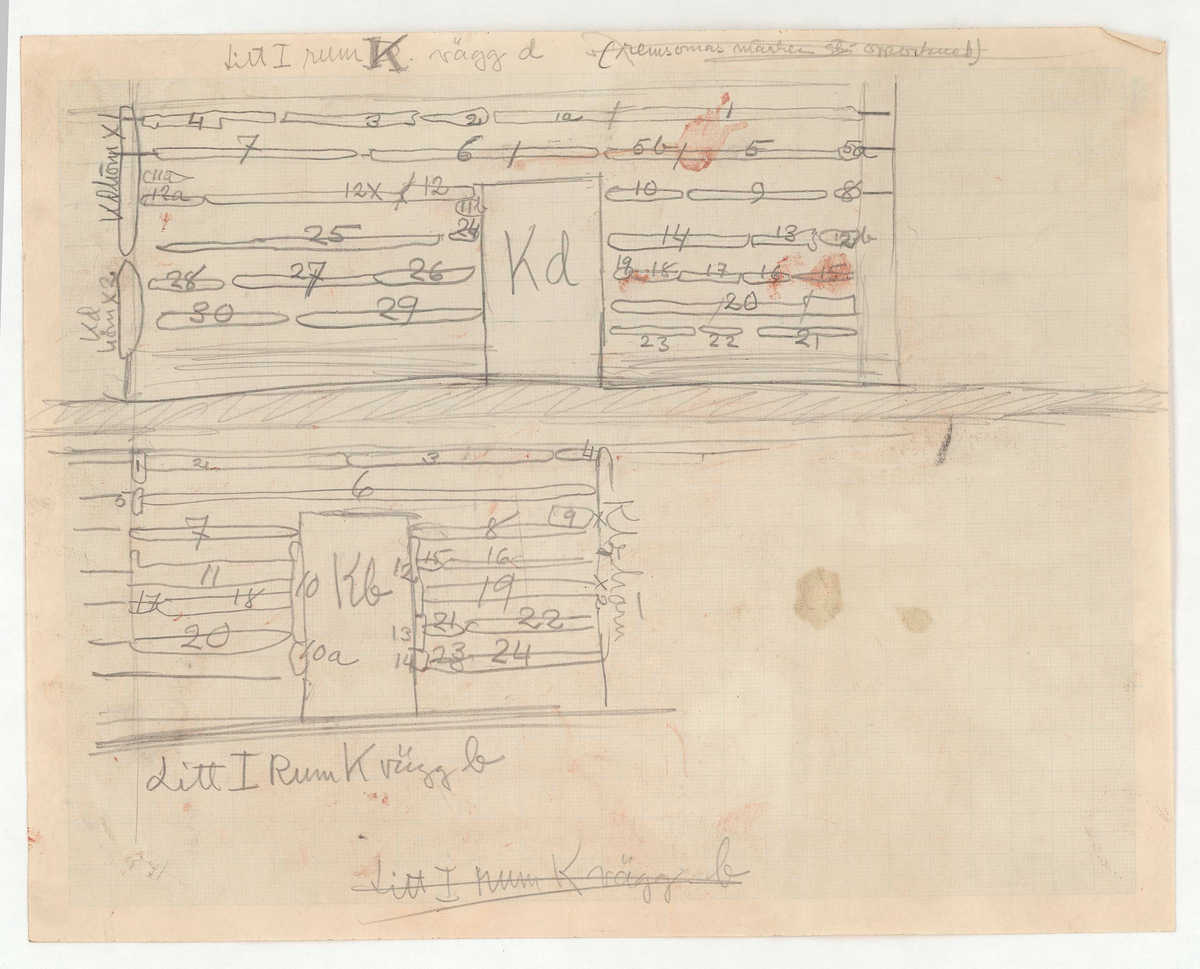 Litt I rum K. vägg d (remsornas märken
4 3 2 1a 1
7 6 5b 5 5a
11a
12a 12x 12 10 9 8
11b
25 24 14 13 12b
28 27 26 19 18 17 16 15
30 29 20
23 22 21
Kd
Kd hörn X1
Kd
hörn X2
1 2 3 4
5 6
7 8 9
11 10 12 15 16
17 18 19
20 13 21 22
10a 14 23 24
Kb
X
X2
Litt I Rum K vägg b
Litt I rum K vägg b